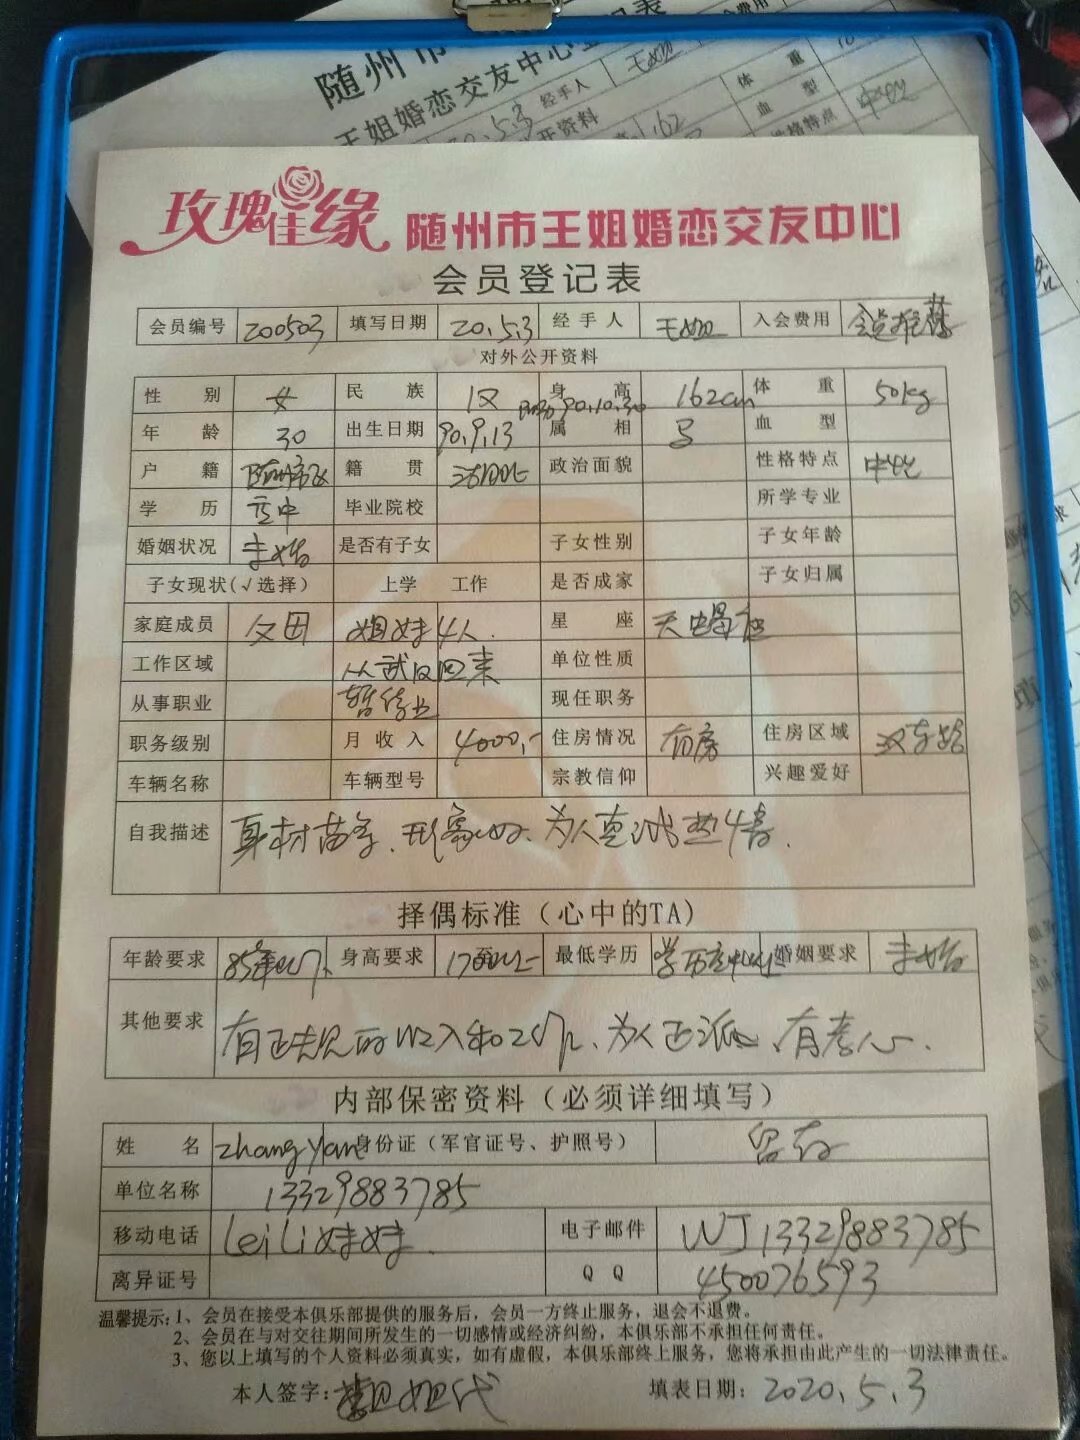 随州市
王姐婚恋交友中心
经手人 王姐
体 重
血 型
中
玫瑰佳缘 随州市王姐婚恋交友中心
会员登记表
会员编号 200503 填写日期 20.5.3 经手人 王姐 入会费用
对外公开资料
性 别 女 民 族 汉 身 高 162cm 体 重 50kg
阳历90.10.30
年 龄 30 出生日期 90.9.13 属 相 马 血 型
户 籍 籍 贯 湖北 政治面貌 性格特点 中性
学 历 高中 毕业院校 所学专业
婚姻状况 未婚 是否有子女 子女性别 子女年龄
子女现状(√选择) 上学 工作 是否成家 子女归属
家庭成员 父母 姐妹4人. 星 座 天蝎座
工作区域 从武汉回来 单位性质
从事职业 暂待业 现任职务
职务级别 月收入 4000,- 住房情况 有房 住房区域 汉东路
车辆名称 车辆型号 宗教信仰 兴趣爱好
自我描述 身材苗条、形象好、为人真诚热情.
择偶标准（心中的TA）
年龄要求 85年以下. 身高要求 170以上 最低学历 学历高中以上 婚姻要求 未婚
其他要求 有正规的收入和工作、为人正派、有孝心.
内部保密资料（必须详细填写）
姓 名 zhang yan 身份证（军官证号、护照号） 留存
单位名称 13329883785
移动电话 Lei Li妹妹. 电子邮件 WJ13329883785
离异证号 Q Q 450076593
温馨提示：1、会员在接受本俱乐部提供的服务后，会员一方终止服务，退会不退费。
2、会员在与对交往期间所发生的一切感情或经济纠纷，本俱乐部不承担任何责任。
3、您以上填写的个人资料必须真实，如有虚假，本俱乐部终上服务，您将承担由此产生的一切法律责任。
本人签字： 姐代 填表日期：2020.5.3